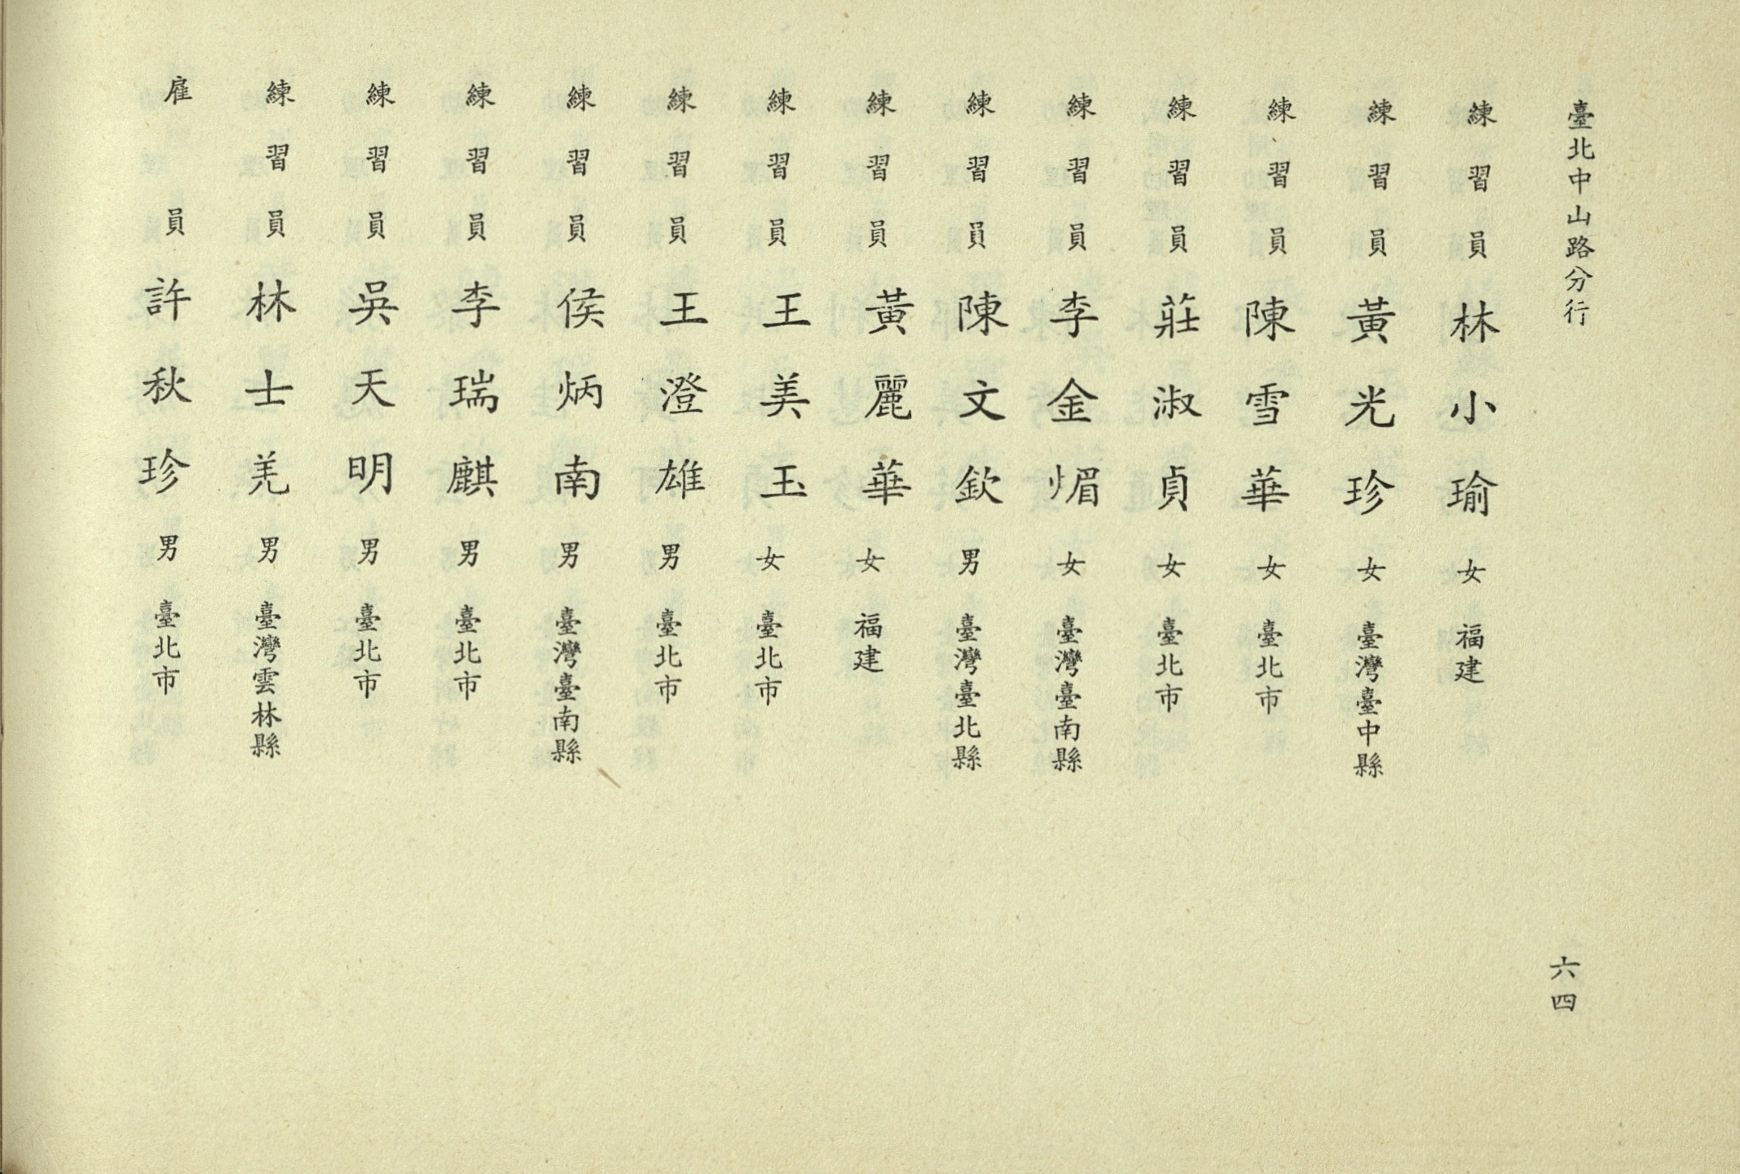 臺北中山路分行
六四
練習員 林小瑜 女 福建
練習員 黃光珍 女 臺灣臺中縣
練習員 陳雪華 女 臺北市
練習員 莊淑貞 女 臺北市
練習員 李金焆 女 臺灣臺南縣
練習員 陳文欽 男 臺灣臺北縣
練習員 黃麗華 女 福建
練習員 王美玉 女 臺北市
練習員 王澄雄 男 臺北市
練習員 侯炳南 男 臺灣臺南縣
練習員 李瑞麒 男 臺北市
練習員 吳天明 男 臺北市
練習員 林士羌 男 臺灣雲林縣
雇員 許秋珍 男 臺北市